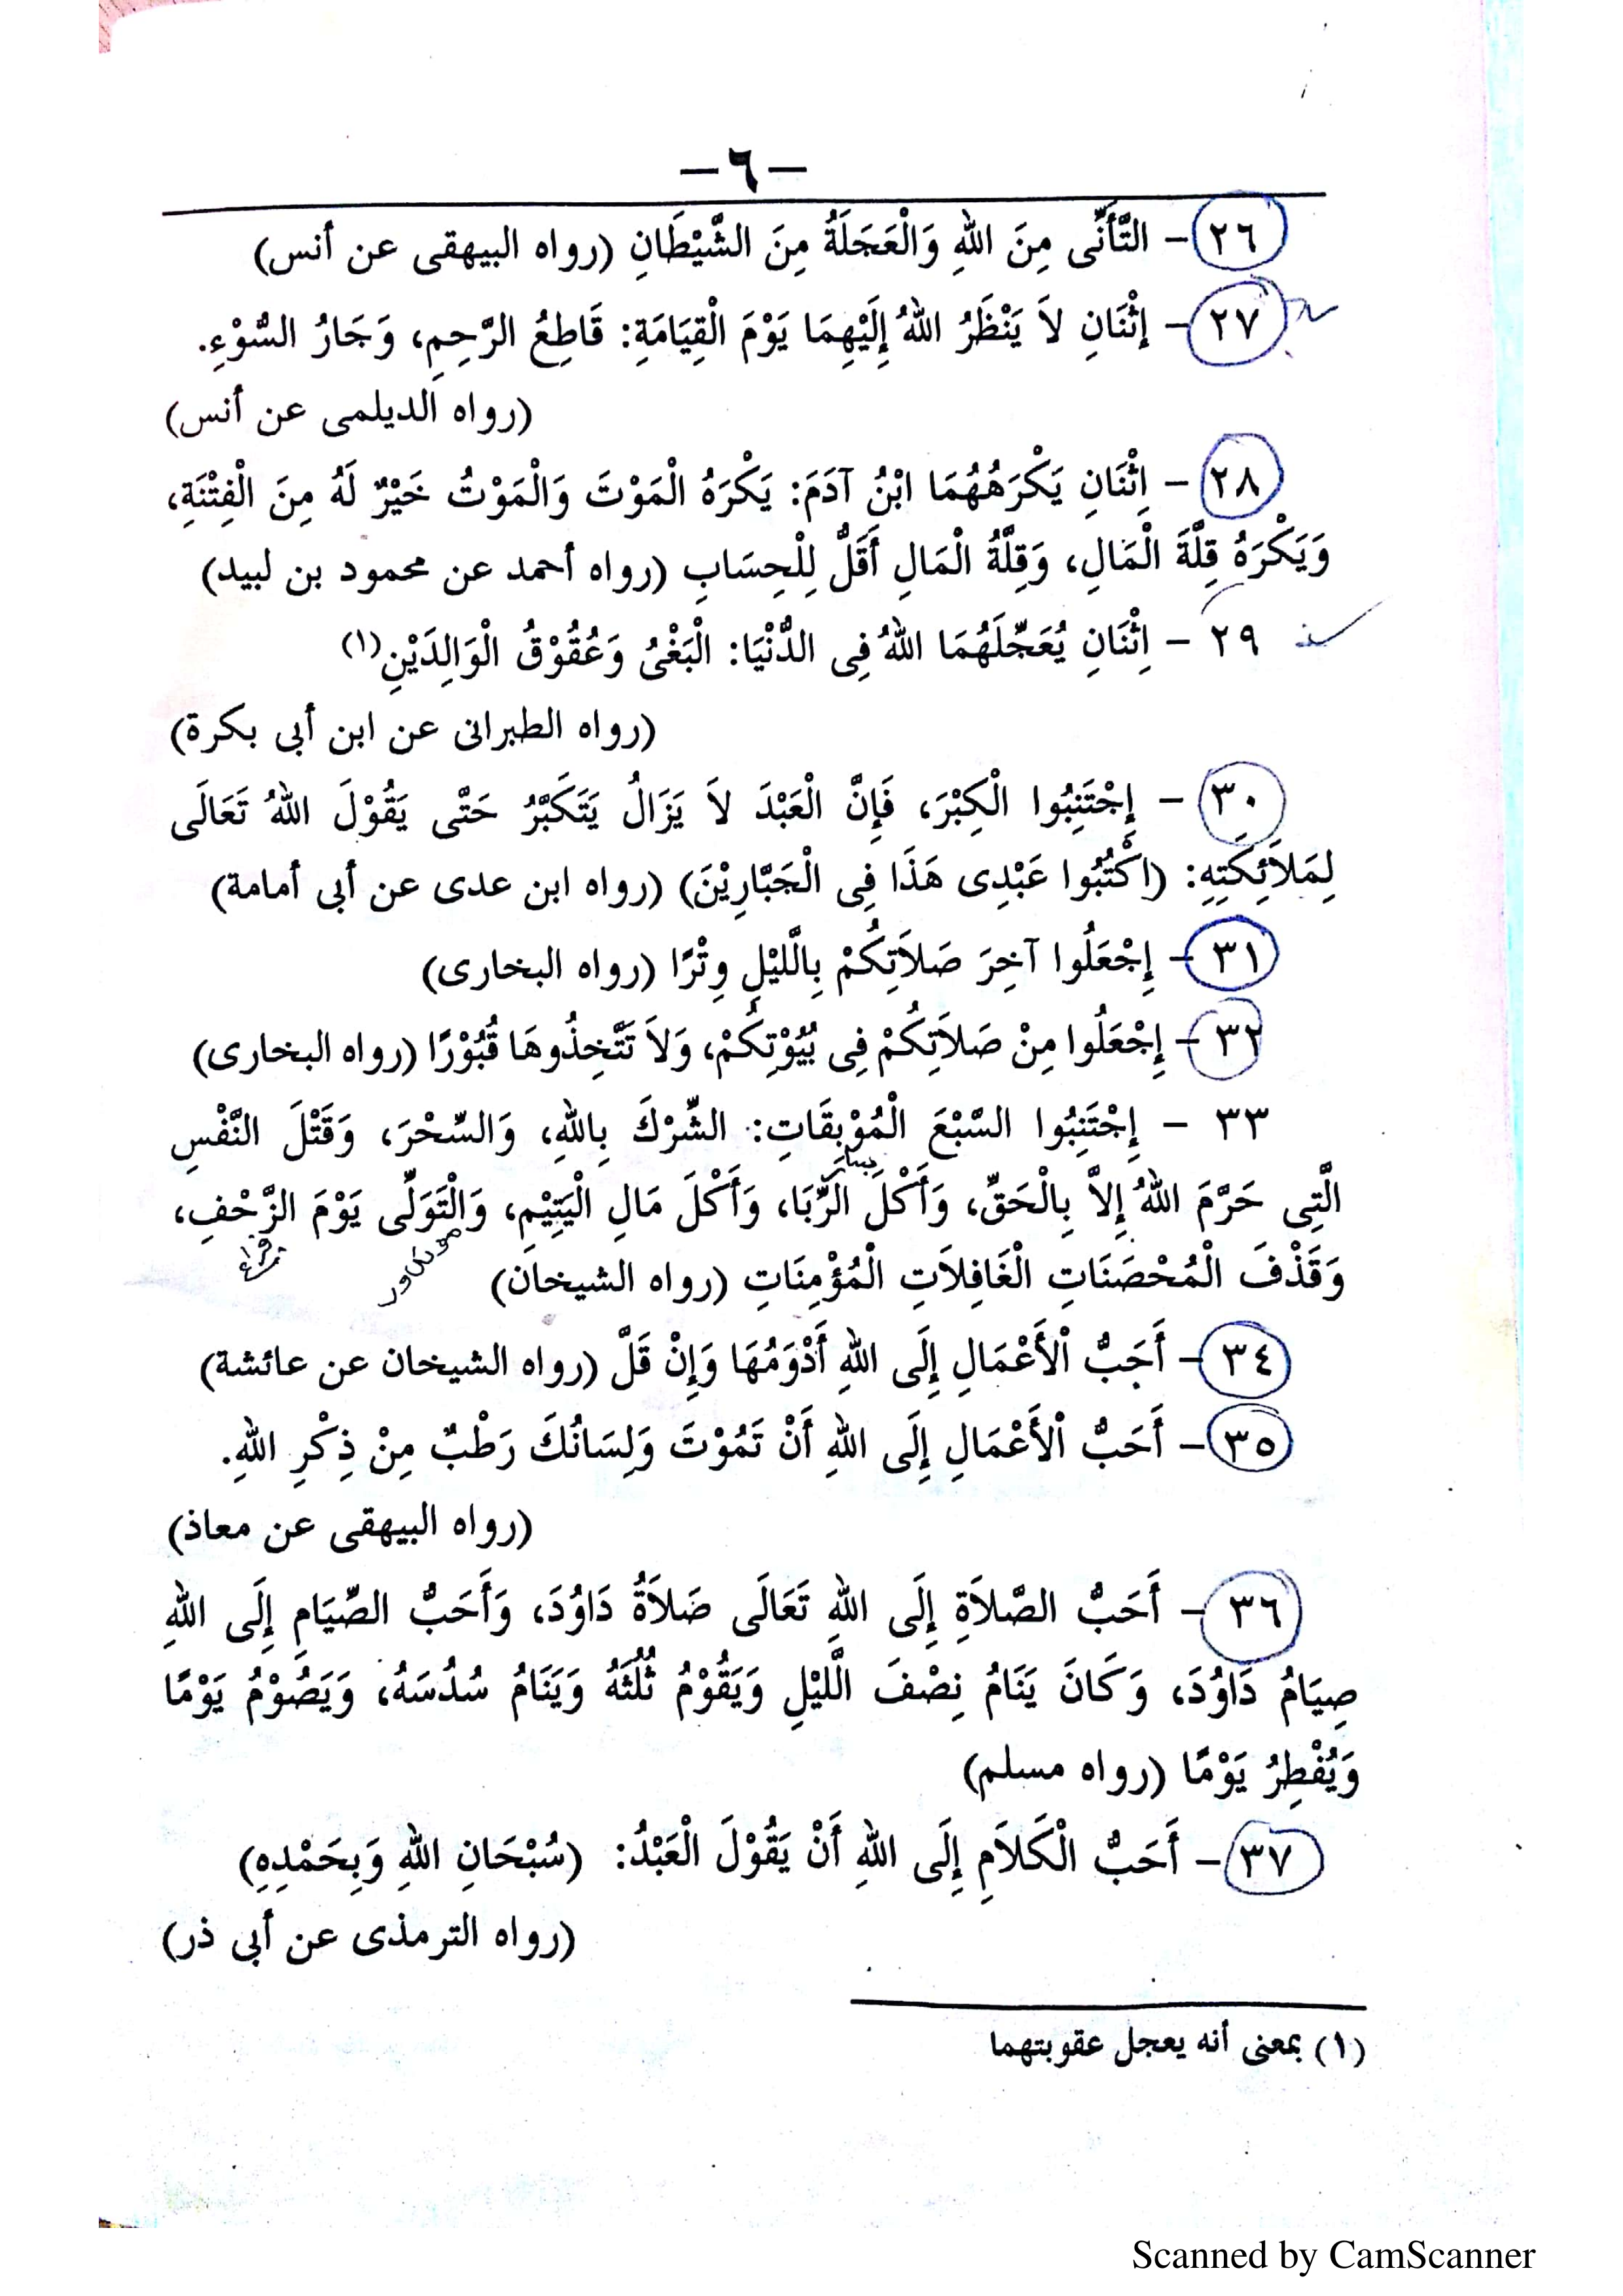 -٦-
٢٦ - التَّأَنِّى مِنَ اللهِ وَالْعَجَلَةُ مِنَ الشَّيْطَانِ (رواه البيهقى عن أنس)
٢٧ - إِثْنَانِ لاَ يَنْظَرُ اللهُ إِلَيْهِمَا يَوْمَ الْقِيَامَةِ: قَاطِعُ الرَّحِمِ، وَجَارُ السُّوْءِ.
(رواه الديلمى عن أنس)
٢٨ - اِثْنَانِ يَكْرَهُهُمَا ابْنُ آدَمَ: يَكْرَهُ الْمَوْتَ وَالْمَوْتُ خَيْرٌ لَهُ مِنَ الْفِتْنَةِ،
وَيَكْرَهُ قِلَّةَ الْمَالِ، وَقِلَّةُ الْمَالِ أَقَلُّ لِلْحِسَابِ (رواه أحمد عن محمود بن لبيد)
٢٩ - اِثْنَانِ يُعَجِّلَهُمَا اللهُ فِى الدُّنْيَا: الْبَغْىُ وَعُقُوْقُ الْوَالِدَيْنِ(١)
(رواه الطبرانى عن ابن أبى بكرة)
٣٠ - إِجْتَنِبُوا الْكِبْرَ، فَإِنَّ الْعَبْدَ لاَ يَزَالُ يَتَكَبَّرُ حَتَّى يَقُوْلَ اللهُ تَعَالَى
لِمَلاَئِكَتِهِ: (اكْتُبُوا عَبْدِى هَذَا فِى الْجَبَّارِيْنَ) (رواه ابن عدى عن أبى أمامة)
٣١ - إِجْعَلُوا آخِرَ صَلاَتِكُمْ بِالَّليْلِ وِتْرًا (رواه البخارى)
٣٢ - إِجْعَلُوا مِنْ صَلاَتِكُمْ فِى بُيُوْتِكُمْ، وَلاَ تَتَّخِذُوهَا قُبُوْرًا (رواه البخارى)
٣٣ - إِجْتَنِبُوا السَّبْعَ الْمُوْبِقَاتِ: الشِّرْكَ بِاللهِ، وَالسِّحْرَ، وَقَتْلَ النَّفْسِ
الَّتِى حَرَّمَ اللهُ إِلاَّ بِالْحَقِّ، وَأَكْلَ الرِّبَا، وَأَكْلَ مَالِ الْيَتِيْمِ، وَالْتَوَلِّى يَوْمَ الزَّحْفِ،
وَقَذْفَ الْمُحْصَنَاتِ الْغَافِلاَتِ الْمُؤْمِنَاتِ (رواه الشيخان)
٣٤ - أَحَبُّ الْأَعْمَالِ إِلَى اللهِ أَدْوَمُهَا وَإِنْ قَلَّ (رواه الشيخان عن عائشة)
٣٥ - أَحَبُّ الْأَعْمَالِ إِلَى اللهِ أَنْ تَمُوْتَ وَلِسَانُكَ رَطْبٌ مِنْ ذِكْرِ اللهِ.
(رواه البيهقى عن معاذ)
٣٦ - أَحَبُّ الصَّلاَةِ إِلَى اللهِ تَعَالَى صَلاَةُ دَاوُدَ، وَأَحَبُّ الصِّيَامِ إِلَى اللهِ
صِيَامُ دَاوُدَ، وَكَانَ يَنَامُ نِصْفَ الَّليْلِ وَيَقُوْمُ ثُلُثَهُ وَيَنَامُ سُدُسَهُ، وَيَصُوْمُ يَوْمًا
وَيُفْطِرُ يَوْمًا (رواه مسلم)
٣٧ - أَحَبُّ الْكَلاَمِ إِلَى اللهِ أَنْ يَقُوْلَ الْعَبْدُ: (سُبْحَانِ اللهِ وَبِحَمْدِهِ)
(رواه الترمذى عن أبى ذر)
(١) بمعنى أنه يعجل عقوبتهما
Scanned by CamScanner